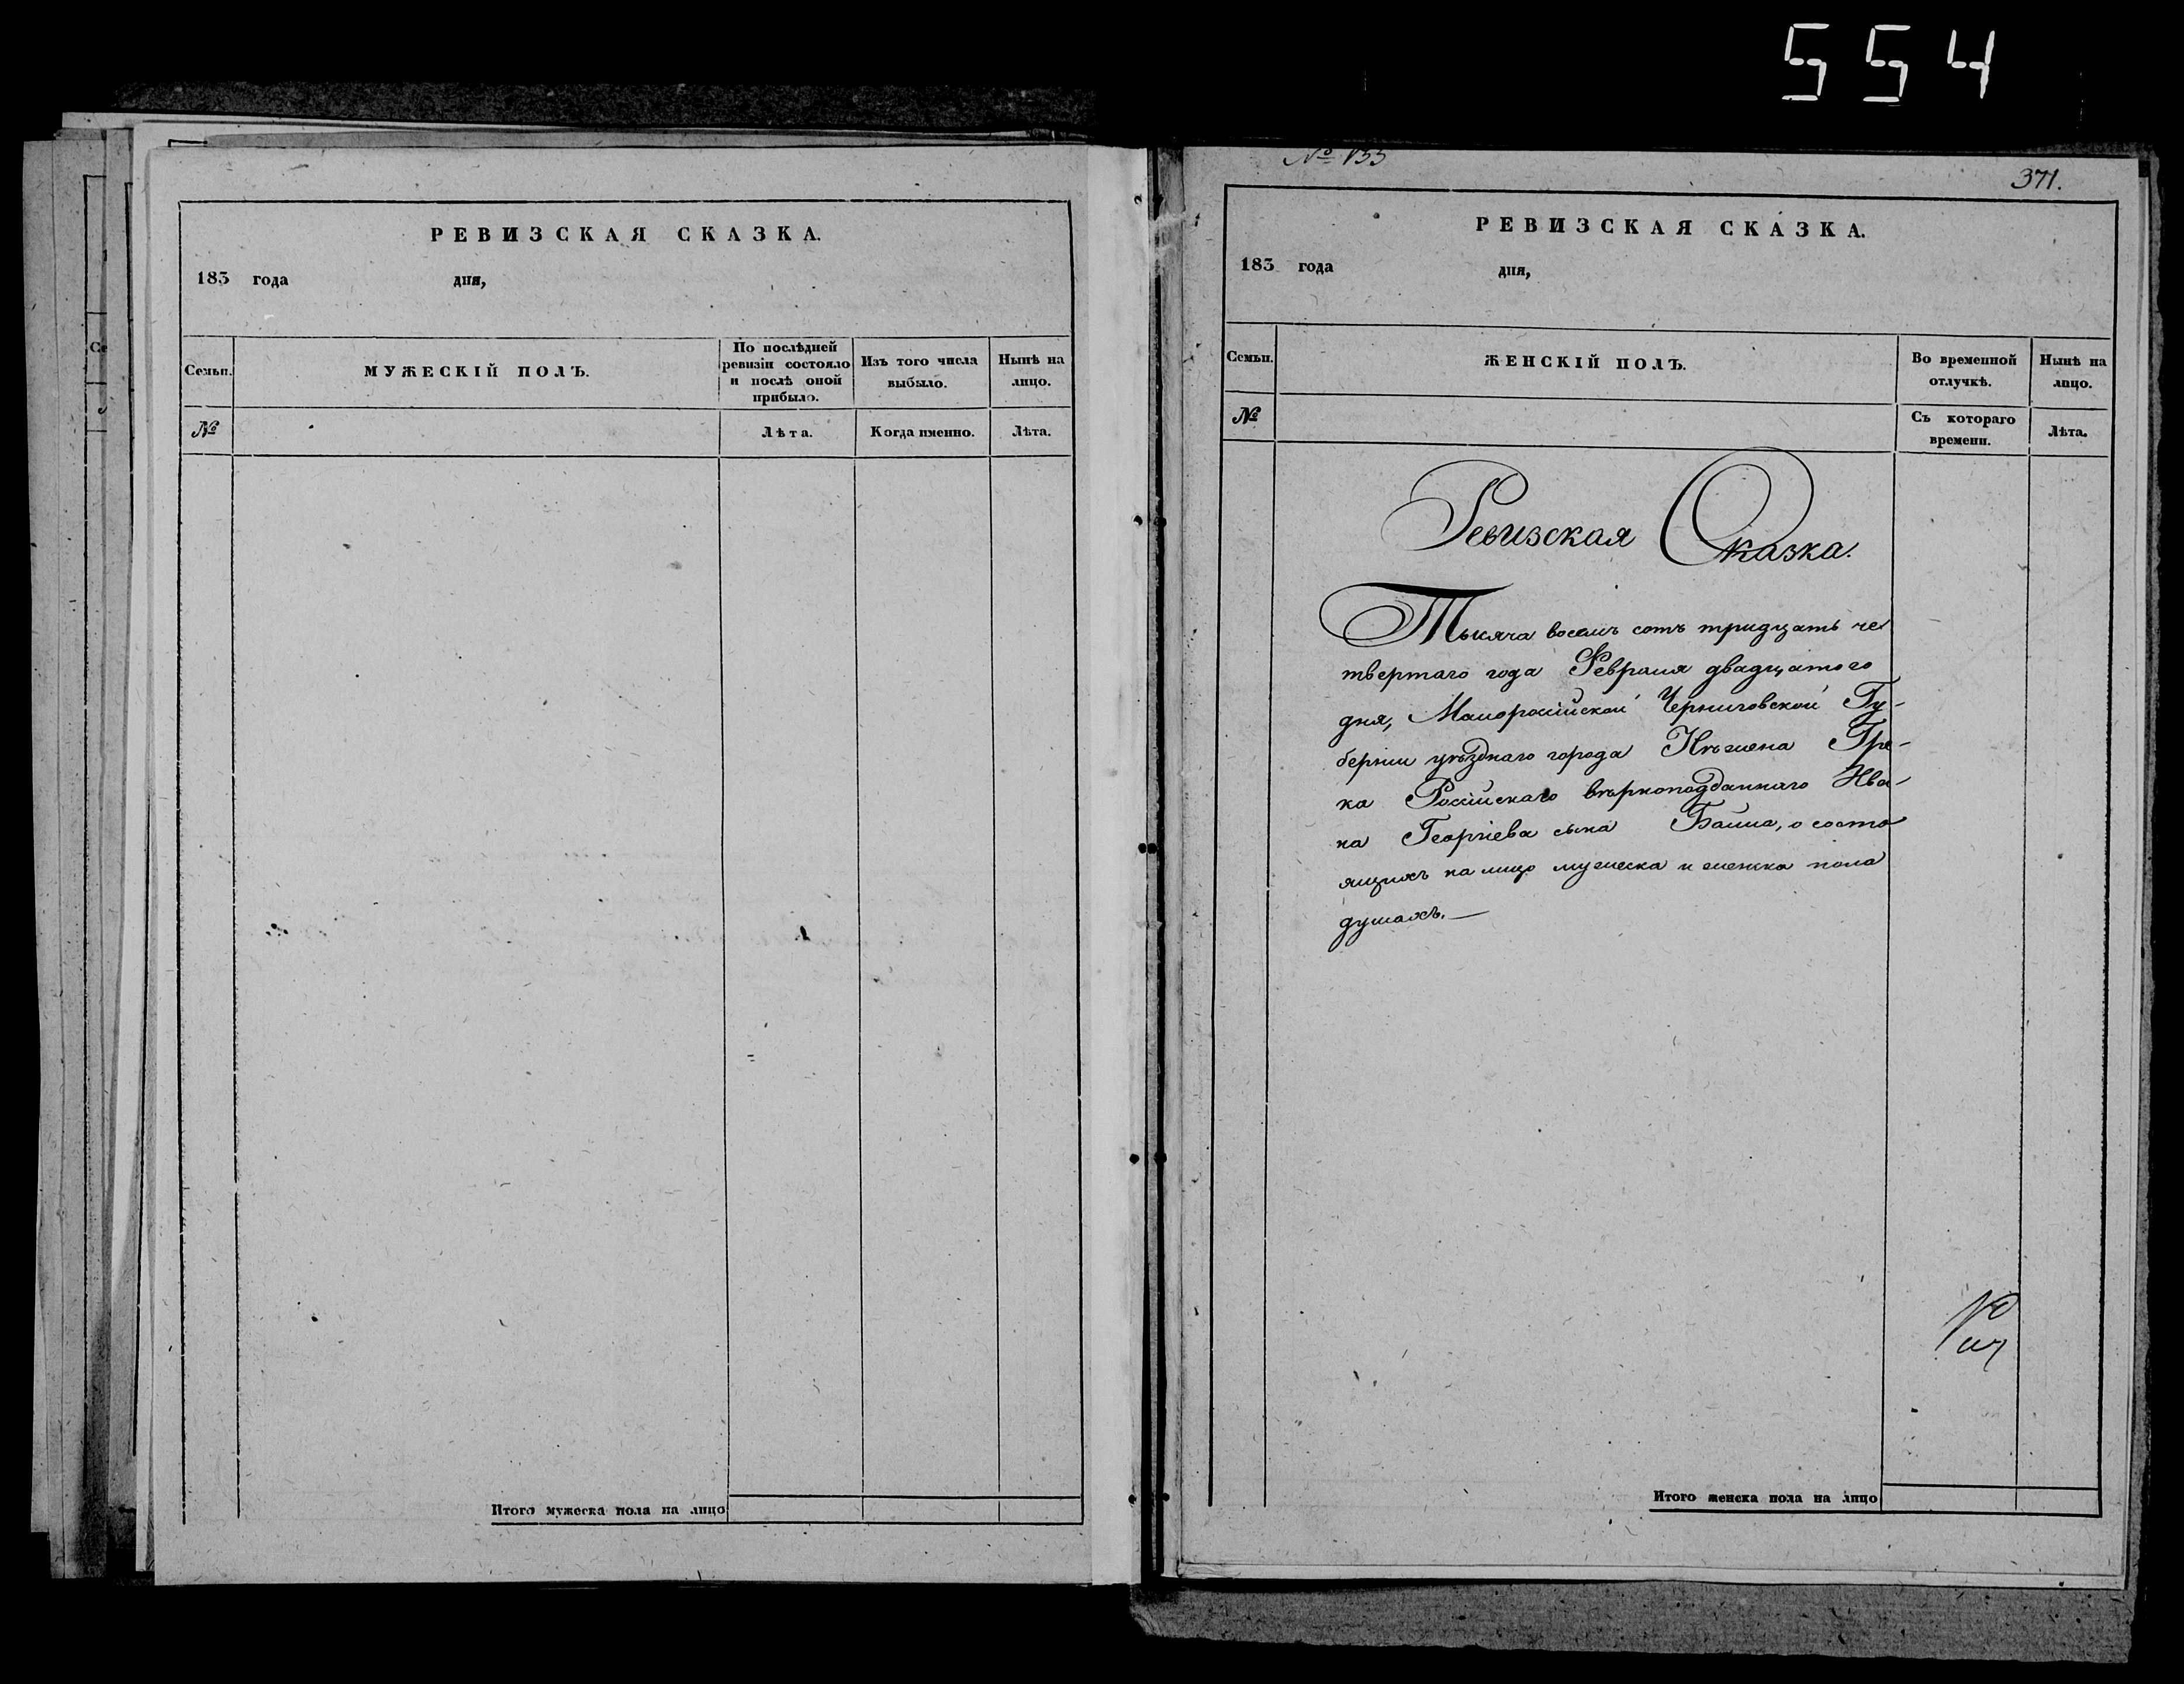 554
РЕВИЗСКАЯ СКАЗКА.
183 года дня,
Семьи.
МУЖЕСКІЙ ПОЛЪ.
По послѣдней
ревизіи состояло
и послѣ оной
прибыло.
Изъ того числа
выбыло.
Нынѣ на
лицо.
№
Лѣта.
Когда именно.
Лѣта.
Итого мужеска пола на лицо
№ 133
371.
РЕВИЗСКАЯ СКАЗКА.
183 года дня,
Семьи.
ЖЕНСКІЙ ПОЛЪ.
Во временной
отлучкѣ.
Нынѣ на
лицо.
№
Съ котораго
времени.
Лѣта.
Ревизская Сказка.
Тысяча восемь сотъ тридцать че
твертаго года Февраля двадцатого
дня, Малоросійской Черниговской Гу-
берніи уѣзднаго города Нѣжена Гре-
ка Російскаго вѣрноподданнаго Ива-
на Георгіева сына Баима, о состо
ящихъ на лицо мужеска и женска пола
душахъ.—
Итого женска пола на лицо